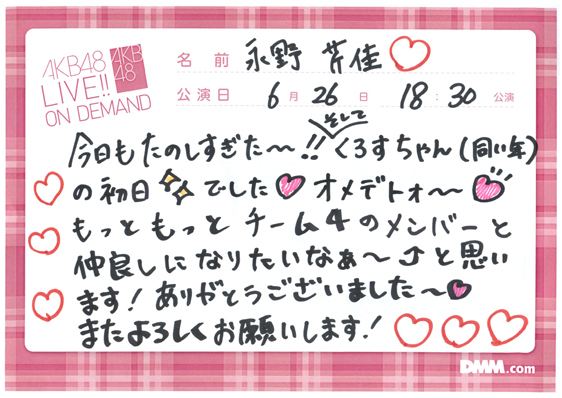 AKB48
LIVE!!
ON DEMAND
AKB
48
名前 永野 芹佳
公演日 6月26日 18:30公演
そして
今日もたのしすぎた〜!! くろすちゃん(同い年)
の初日でした オメデトォ〜
もっともっとチーム4のメンバーと
仲良しになりたいなぁ〜⤴と思い
ます!ありがとうございました〜
またよろしくお願いします!
DMM.com